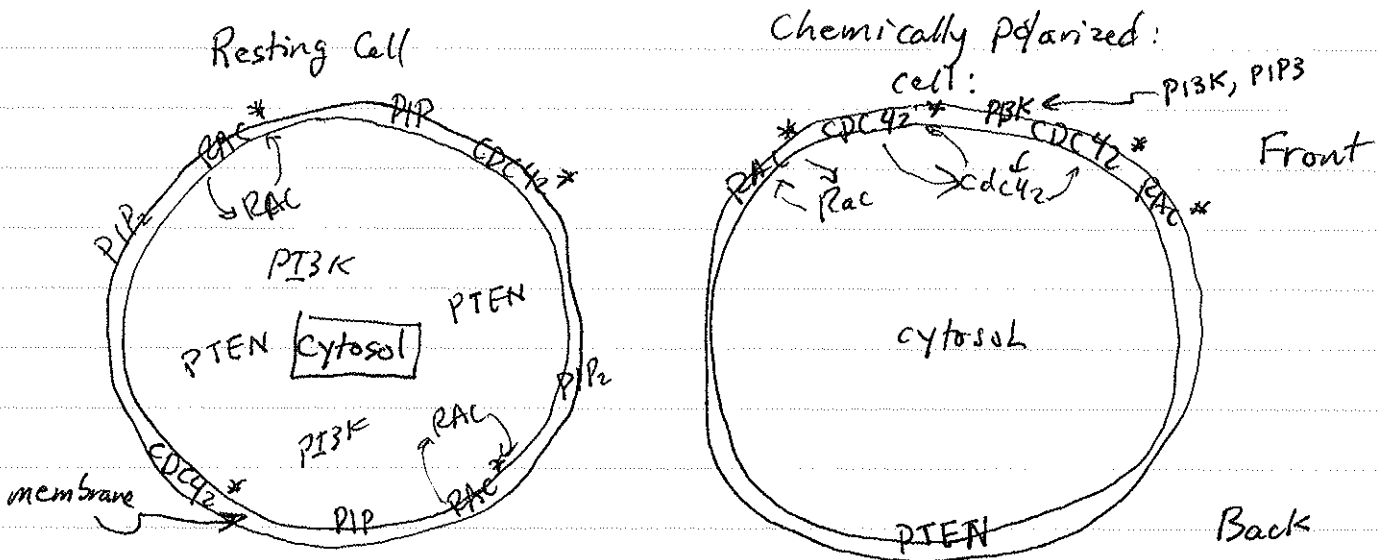 Resting Cell
RAC *
PIP
CDC42 *
PIP2
RAC
PI3K
PTEN
PTEN
Cytosol
PIP2
PI3K
RAC
CDC42 *
RAC *
PIP
membrane
Chemically Polarized:
cell:
PI3K, PIP3
RAC *
CDC42 *
PI3K
CDC42 *
RAC *
Front
Rac
Cdc42
cytosol
PTEN
Back